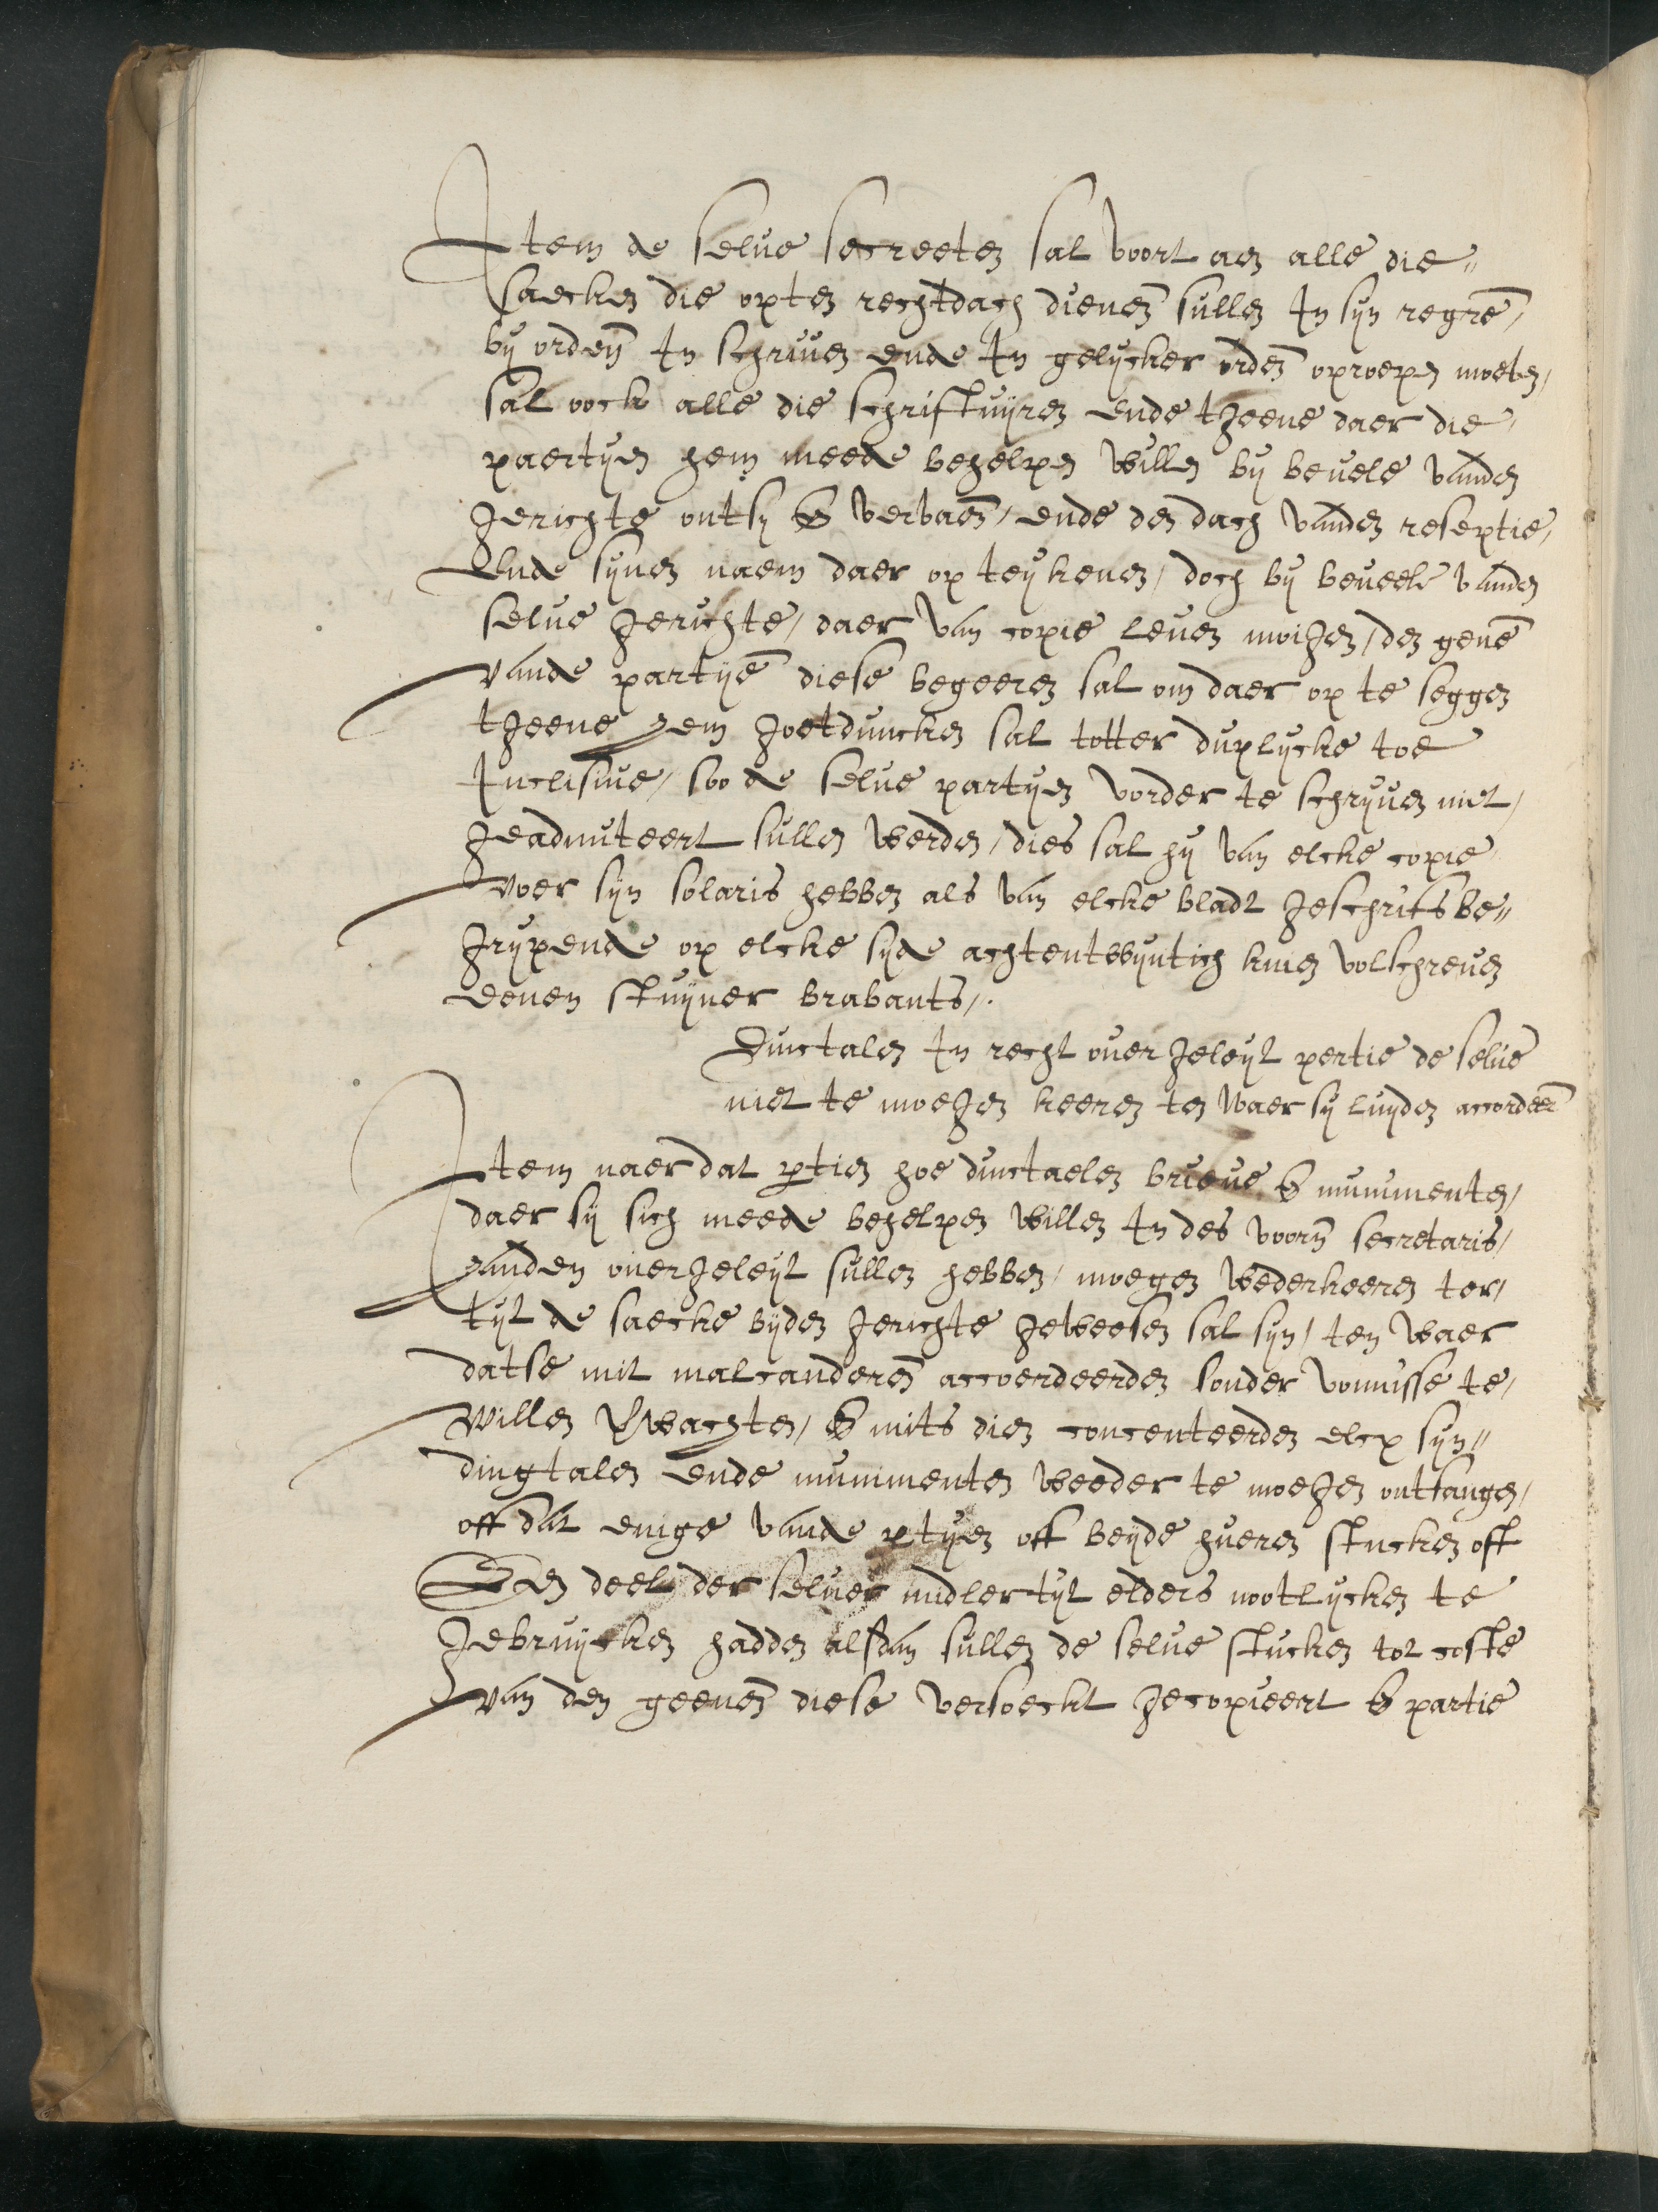 Item de selue secreeten sal voort aen alle die"
saecken die opten rechtdach dienen̄ sullen In syn regrē,
by orden̄ In schriuen ende In gelycker orden̄ oproepen moeten,
sal oock alle die schriftuyren ende tgeene daer die,
paertyen hem meede behelpen willen by beuele vanden
gerichte ontfn & verbaen̄, ende den dach vanden reseptie,
Ende synen naem daer op teykenen, doch by beueele vanden
selue gerichte, daer van copie leuen moigen, den genē
vande partyē diese begeeren sal om daer op te seggen
tgeene hem goetduncken sal totter duplycke toe
Inclisiue, soo de selue partyen vorder te schryuen niet,
geadmiteert sullen werden, dies sal hy van elcke copie,
voer syn solaris hebben als van elcke bladt geschrifts be"
grypende op elcke syde achtentwyntich linien volschreuen
eenen stuyuer brabants,.
Dinctalen In recht ouergeleyt pertie de selue
niet te moegen keeren ten waer sy luyden accordeerē
Item naer dat ptien hoe dinctaelen brieue & munimenten,
daer sy sich meede behelpen willen In des voorn̄ secretaris,
handen ouergeleyt sullen hebben, moegen wederkeeren ter,
tyt de saecke byden gerichte geweesen sal syn, ten waer
datse mit malcanderen̄ accoerdeerden sonder vonnisse te,
willen Vwachten, & mits dien concenteerden elcx syn"
dingtalen ende munimenten weeder te moegen ontfangen,
off dat enige vande ptyen oft beyde hueren stucken oft
Een deel der seluer midlertyt elders nootlycken te
gebruycken hadden alsdan sullen de selue stucken tot coste
van den geenen̄ diese versoeckt gecopieert & partie